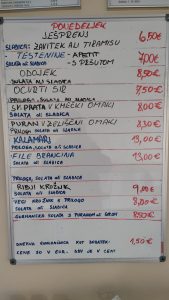 PONEDELJEK
JEŠPRENJ 6,50€
SLADICA: ZAVITEK ALI TIRAMISU
TESTENINE - APETIT 7,00€
SOLATA ALI SLADICA - S PRŠUTOM
ODOJEK 8,50€
SOLATA ALI SLADICA
OCVRTI SIR 7,50€
PRILOGA, SOLATA ALI SLADICA
SV. PRATA V KMEČKI OMAKI 8,00€
SOLATA ALI SLADICA
PURAN V ZELIŠČNI OMAKI 8,30€
PRILOGA, SOLATA ALI SLADICA
KALAMARI 13,00€
PRILOGA, SOLATA ALI SLADICA
FILE BRANCINA 13,00€
PRILOGA, SOLATA ALI SLADICA
RIBJI KROŽNIK 9,00€
SOLATA ALI SLADICA
VEGI KROŽNIK S PRILOGO 8,00€
SOLATA ALI SLADICA
SOLATA S PURANOM ALI 8,50€
DNEVNA KOT DODATEK: 1,50€
CENE SO V EUR. DDV JE V CENI